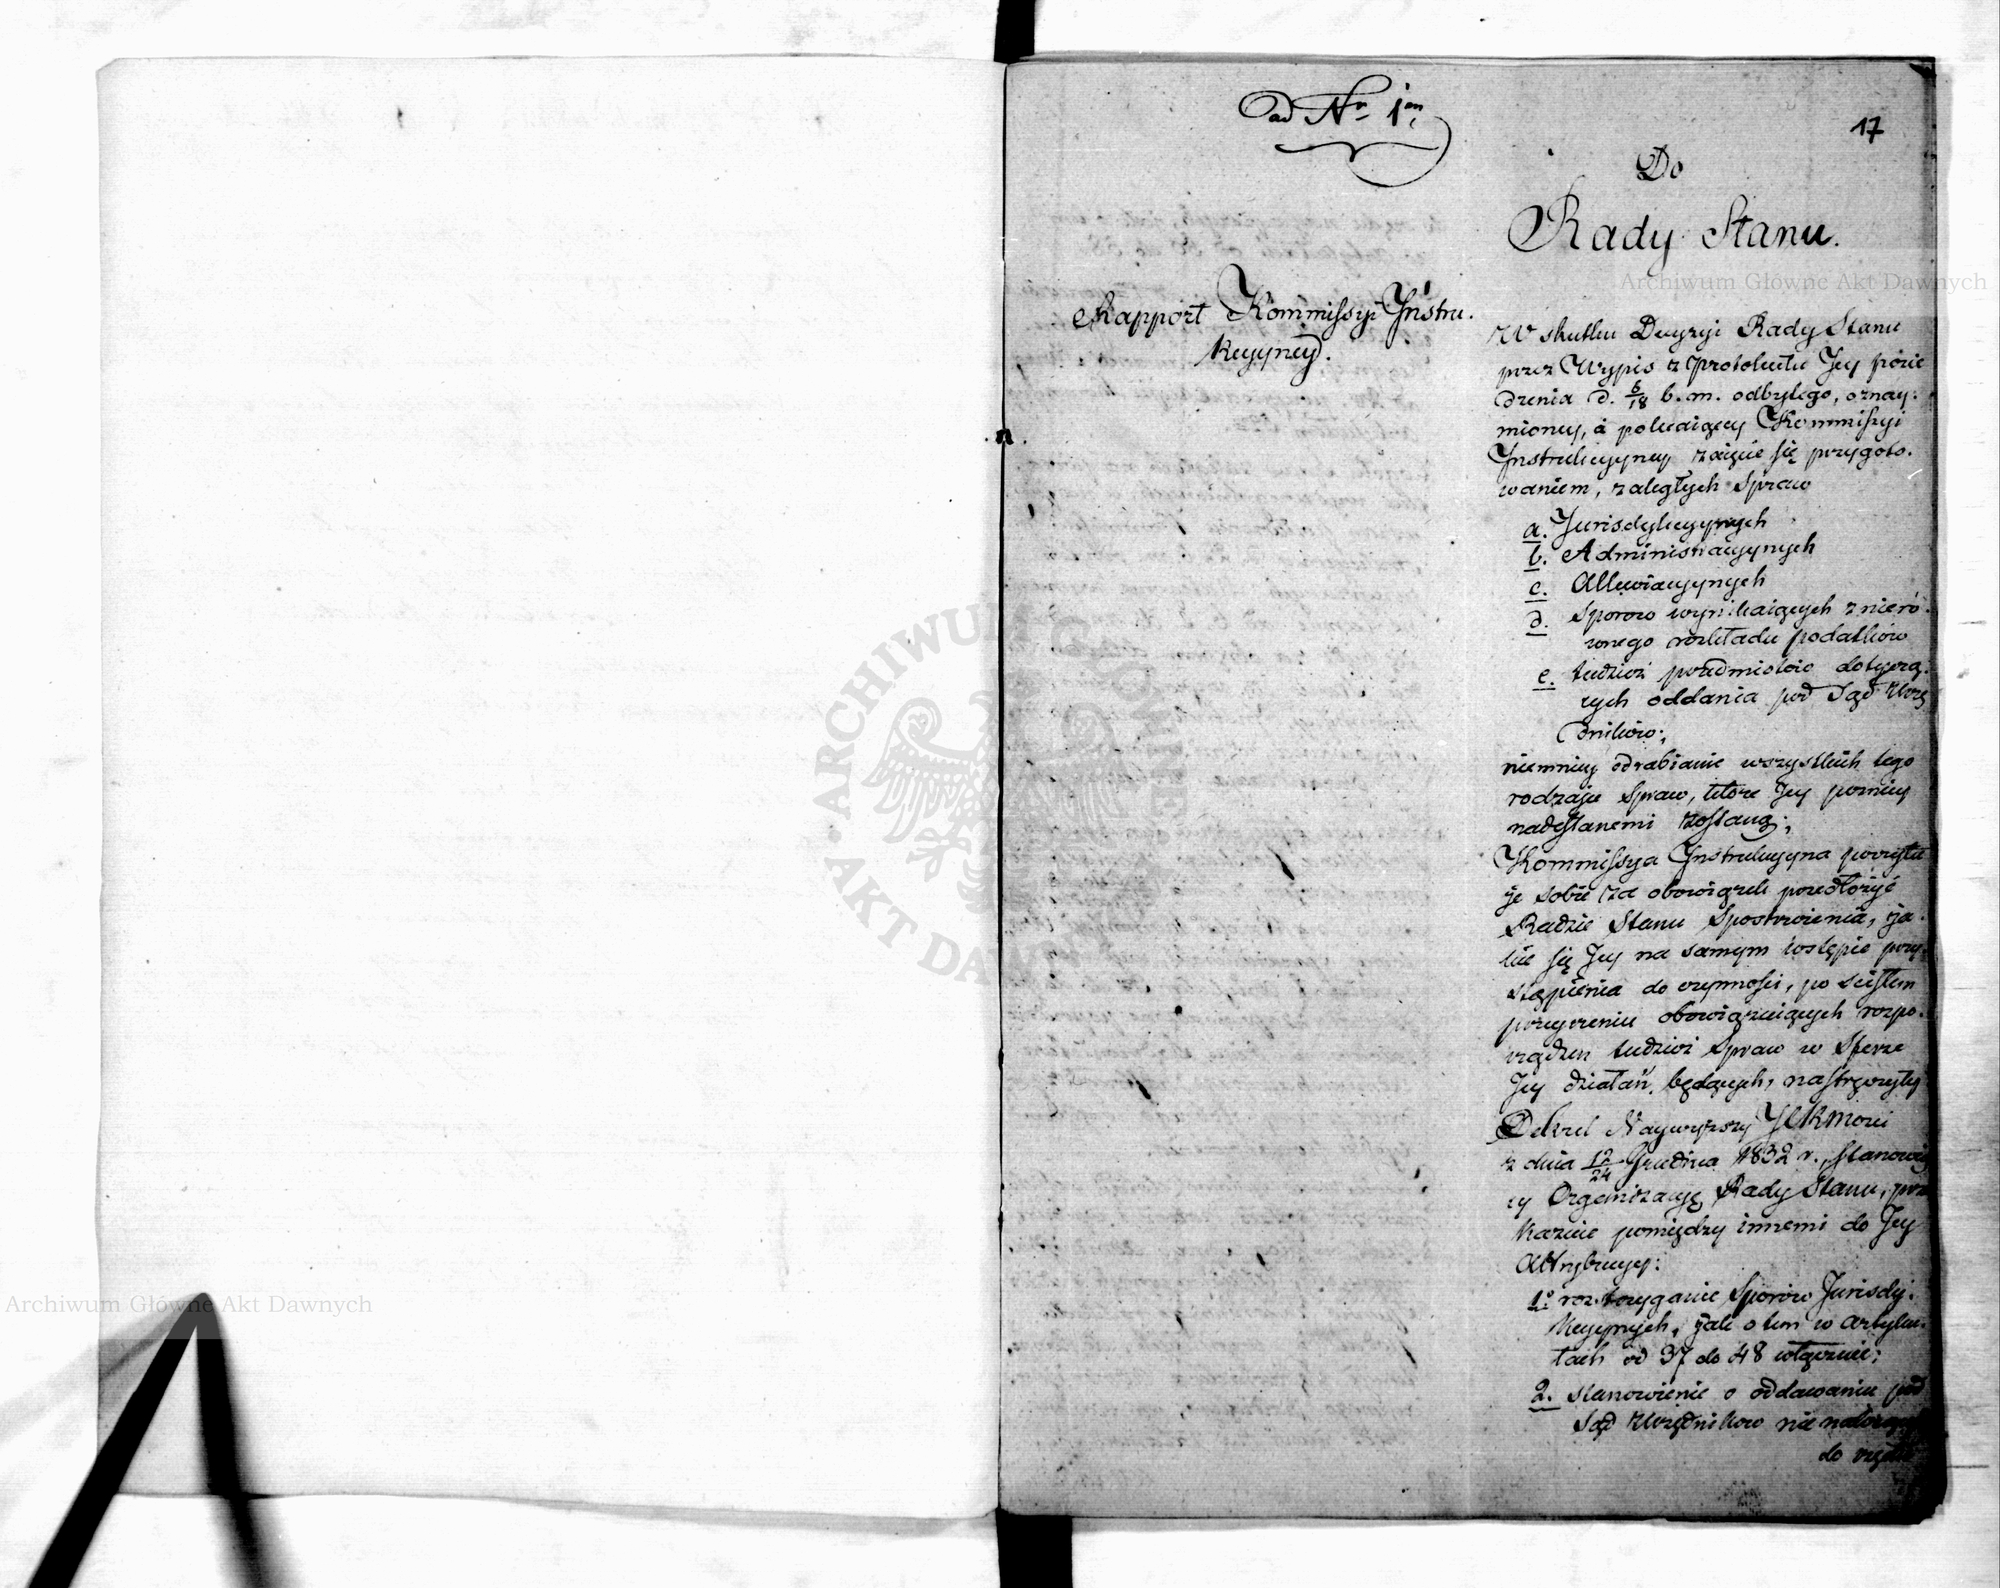 ad Nr 1m
17
Do
Rady Stanu.
Rapport Kommissyi Instru.
kcyyney.
W skutku Decyzyi Rady Stanu
przez Wypis z Protokułu Jey posie
dzenia d. 6/18 b. m. odbytego, oznay:
mioney, a polecaiącey Kommissyi
Instrukcyyney zaięcie się przygoto.
waniem, zaległych Spraw
a. Jurisdykcyynych
b. Administracyynych
c. Alluwiacyynych
d. Sporów wynikaiących z nieró.
wnego rozkładu podatków
e. tudzież przedmiotów dotyczą.
cych oddania pod Sąd Urzę
dników;
niemniey odrabianie wszystkich tego
rodzaju Spraw, które Jey pozniey
nadesłanemi zostaną;
Kommissya Instrukcyyna poczytu
je sobie za obowiązek przedłożyć
Radzie Stanu Spostrzeżenia, ja.
kie się Jey na samym wstępie przy.
stąpienia do czynności, po ścisłem
przeyrzeniu obowiązuiących rozpo.
rządzeń tudzież Spraw w Sferze
Jey działań będących, nastręczyły
Dekret Naywyższy JCKMości
z dnia 12/24 Grudnia 1832 r., Stanowią
cy Organizacyę Rady Stanu, prze
kazuie pomiędzy innemi do Jey
Attrybucyy:
1o rozstrzyganie Sporów Jurisdy.
kcyynych, jak o tem w artyku.
łach od 37 do 48 włącznie;
2. stanowienie o oddawaniu pod
Sąd Urzędników nienależących
do rzędu
Archiwum Główne Akt Dawnych
Archiwum Główne Akt Dawnych
ARCHIWUM GŁÓWNE AKT DAWNYCH